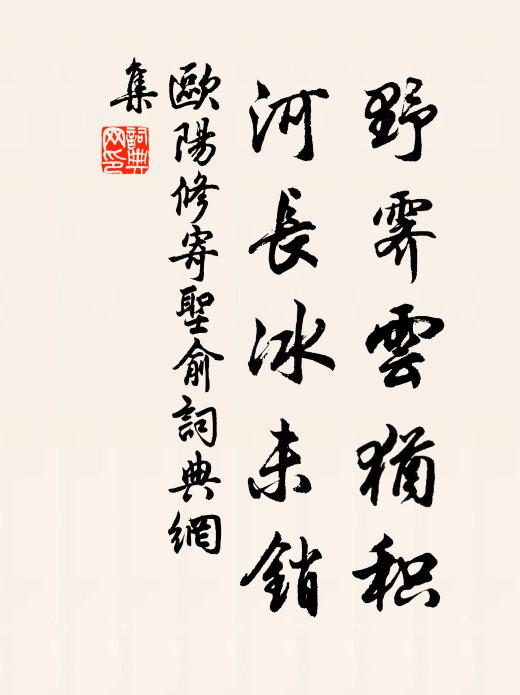 野霽雲猶积
河長冰未銷
歐陽修寄聖俞詞典網
集
詞典網印